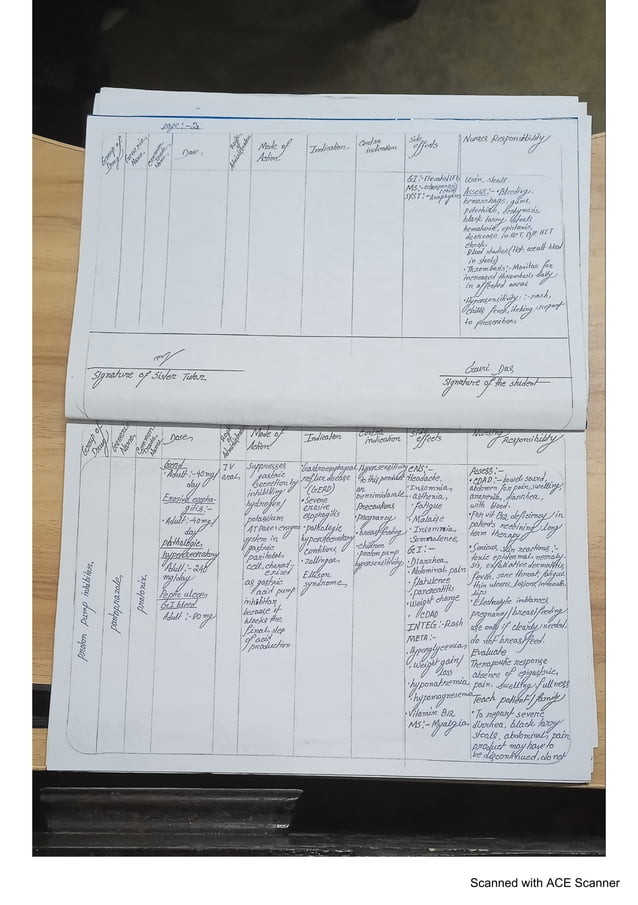 page:-2
Group of Drug
Generic Name
Common Name
Dose
Mode of Action
Indication
Contra indication
Side effects
Nurses Responsibility
GI:-
MS:-
urin, stools
Assess:- • Bleeding,
hemorrhage, gums,
petechiae, ecchymosis
black tarry
hematuria, epistaxis,
decrease in HCT, B/P
check
• Blood studies (Hct, occult blood
in stools)
• Thrombosis:- Monitor for
increased thrombosis daily
in affected areas
• Hypersensitivity:- rash,
chills fever, itching report
to prescriber.
Signature of Sister Tutor
Gauri Das
Signature of the student
Group of Drug
Generic Name
Common Name
Dose
Mode of Action
Indication
Contra indication
Side effects
Nursing Responsibility
proton pump inhibitor,
protonix,
Gerd
• Adult - 40mg/
day
• Adult:- 40mg/
day
pathologic
hypersecretory
Adult:- 240
mg/day
GI bleed
Adult:- 80 mg
IV
oral,
Suppresses
gastric
secretion by
inhibiting
hydrogen/
potassium
ATPase enzyme
system in
gastric
cell,
as gastric
acid pump
inhibitor
because it
blocks the
final step
of acid
production
Gastroesophageal
reflux disease
(GERD)
• Severe
erosive
esophagitis
• pathologic
hypersecretory
conditions
• zollinger
Ellison
syndrome,
Hypersensitivity
to this product
or
Precautions
• pregnancy
• breastfeeding
• children
• proton pump
hypersensitivity
CNS:-
Headache,
• Insomnia,
• asthenia,
• fatigue
• Malaise
• Insomnia,
GI:-
• Diarrhea,
• Abdominal pain
• flatulence
• pancreatitis
• weight change
• CDAD
INTEG:- Rash
META:-
• weight gain/
loss
• hyponatremia,
• hypomagnesemia
• Vitamin B12
MS:- Myalgia,
Assess:-
• CDAD:- bowel sound,
abdomen for pain, swelling,
anorexia, diarrhea,
with blood.
• For vit B12 deficiency in
patients receiving long
term therapy
• Serious skin reactions:-
toxic epidermal
fever, sore throat, fatigue
thin ulcers, lesions
lips
• Electrolyte imbalances
pregnancy/breastfeeding
use only if clearly needed,
do not breastfeed.
Evaluate
Therapeutic response
absence of epigastric
pain, swelling, fullness
Teach patient/family
• To report severe
diarrhea, black tarry
stools, abdominal pain
product may have to
be discontinued, do not
Scanned with ACE Scanner